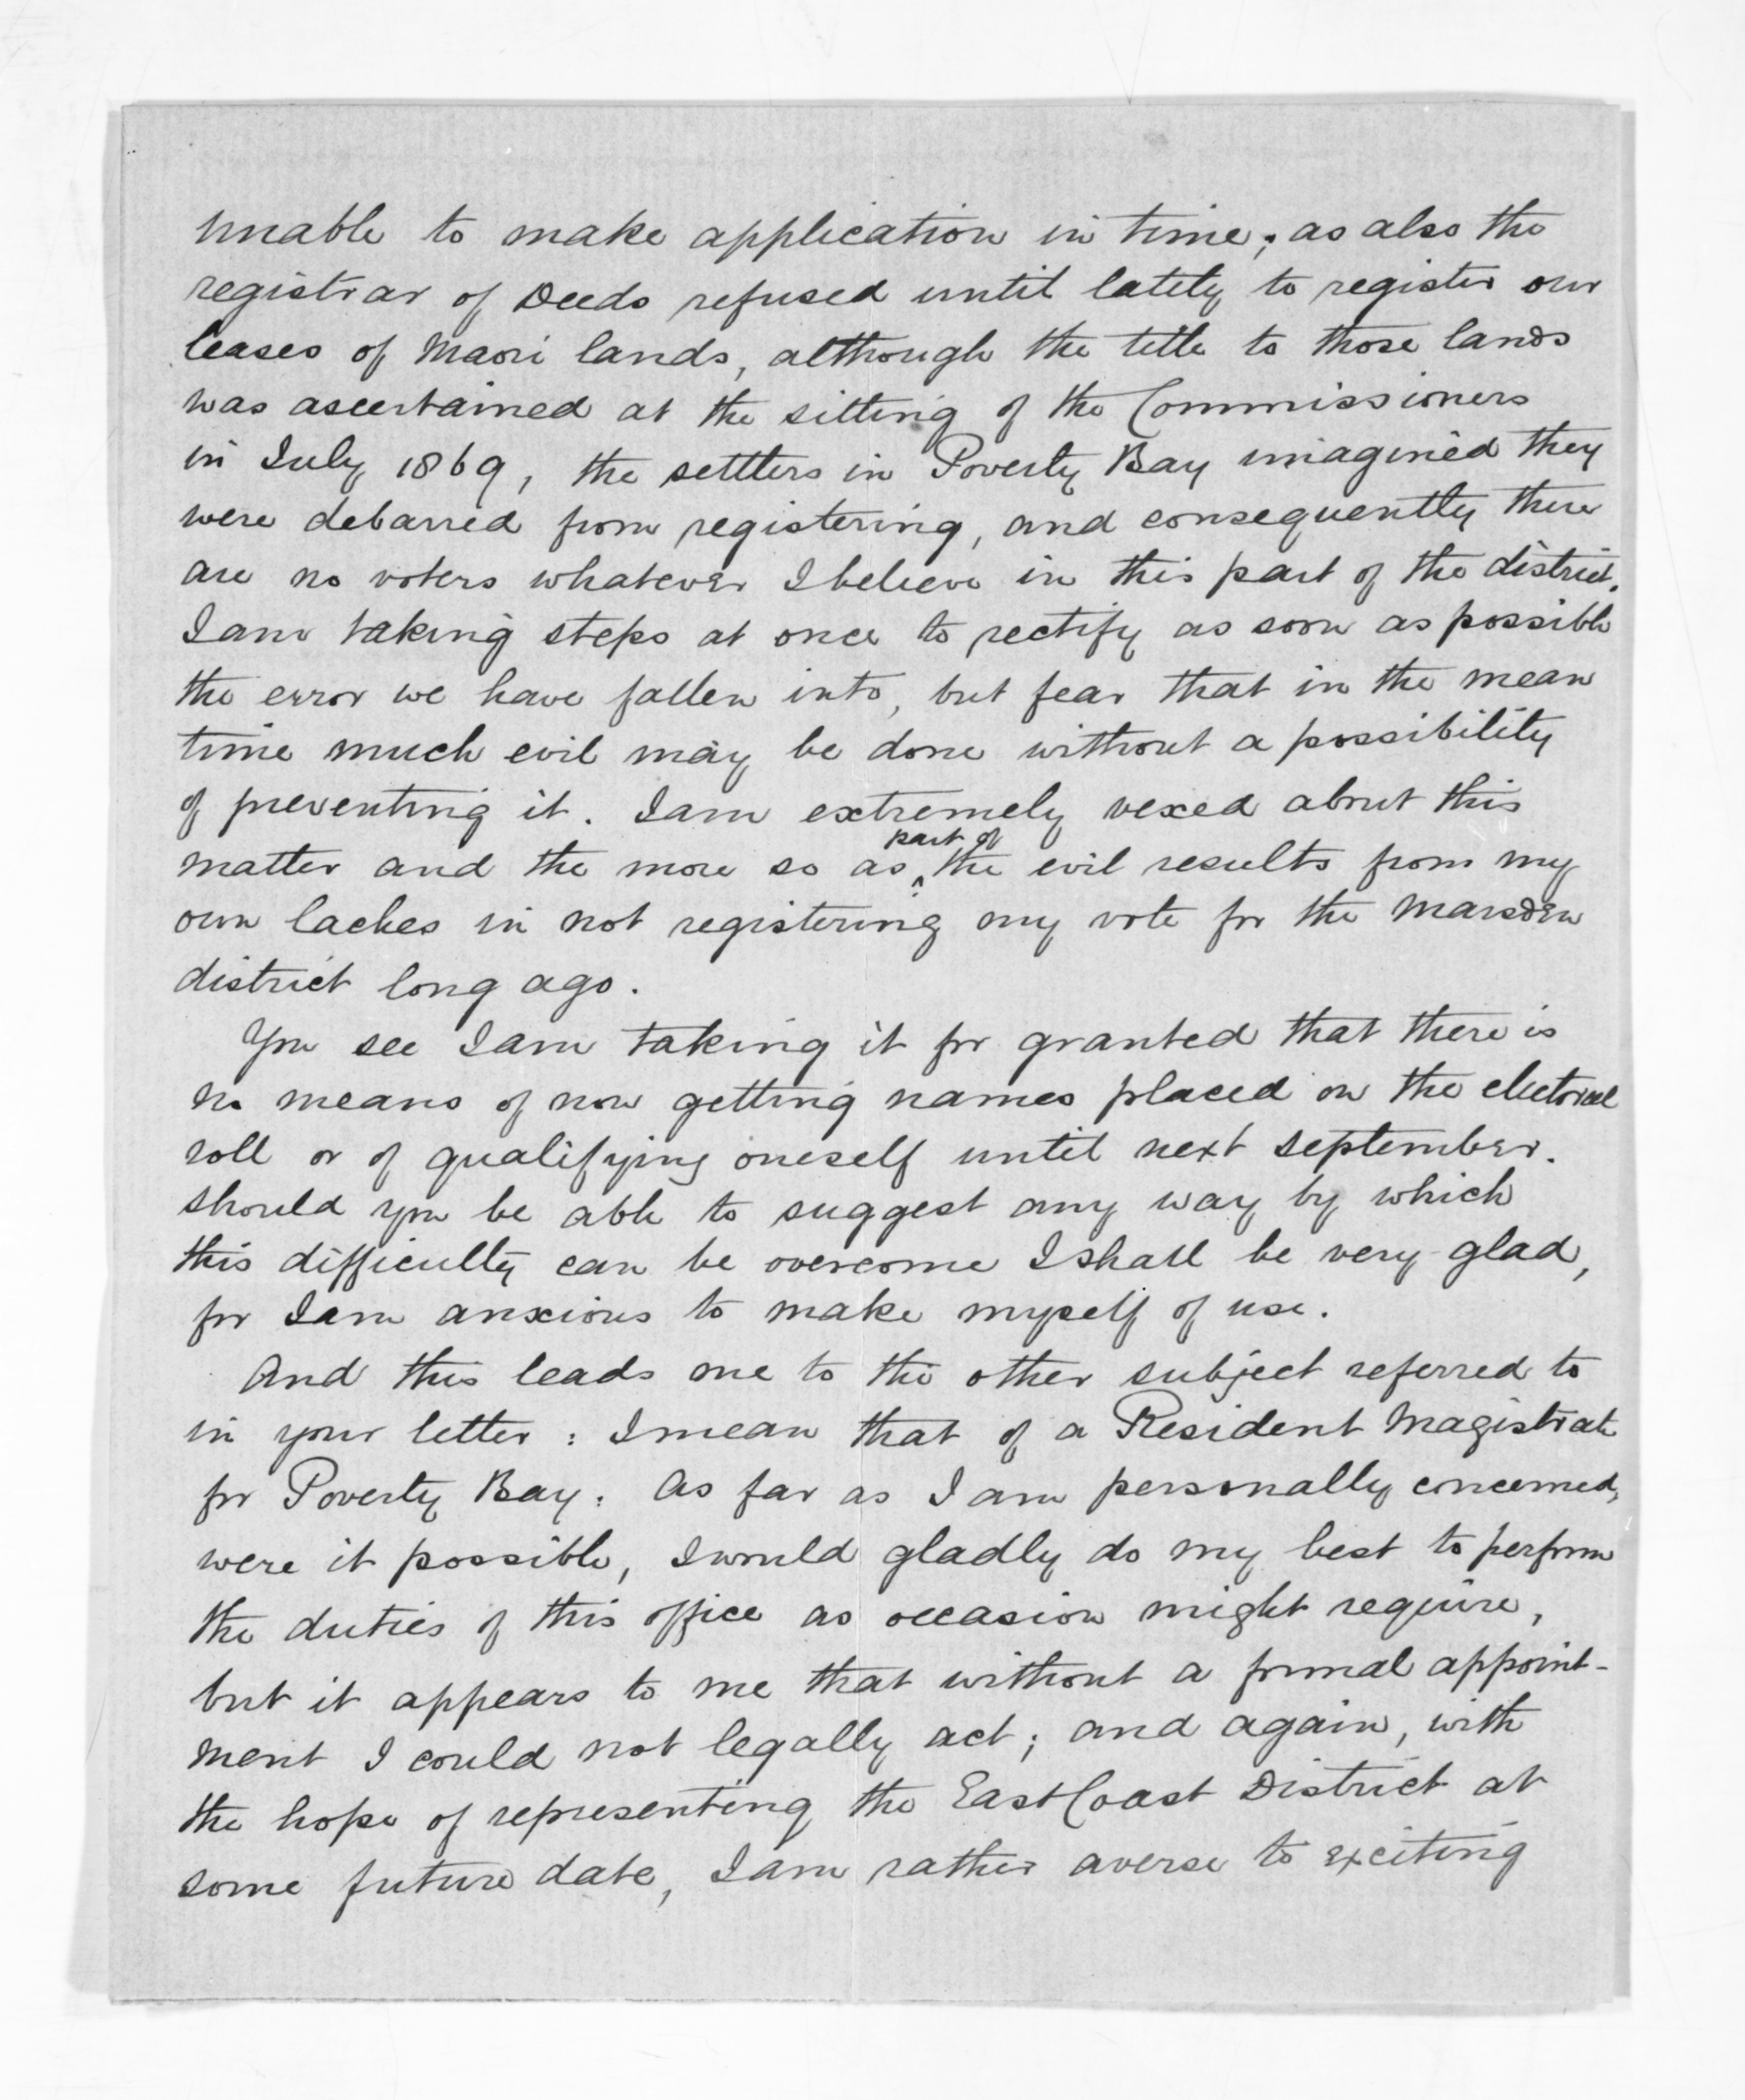 unable to make application in time; as also the
registrar of Deeds refused until lately to register our
leases of Maori lands, although the title to those lands
was ascertained at the sitting of the Commissioners
in July 1869, the settlers in Poverty Bay imagined they
were debarred from registering, and consequently there
are no voters whatever I believe in this part of the district.
I am taking steps at once to rectify as soon as possible
the error we have fallen into, but fear that in the mean
time much evil may be done without a possibility
of preventing it. I am extremely vexed about this
part of
matter and the more so as ^ the evil results from my
own laches in not registering my vote for the Marsden
district long ago.
You see I am taking it for granted that there is
no means of now getting names placed on the electoral
roll or of qualifying oneself until next September.
Should you be able to suggest any way by which
this difficulty can be overcome I shall be very glad,
for I am anxious to make myself of use.
And this leads me to the other subject referred to
in your letter: I mean that of a Resident Magistrate
for Poverty Bay. As far as I am personally concerned,
were it possible, I would gladly do my best to perform
the duties of this office as occasion might require,
but it appears to me that without a formal appoint-
ment I could not legally act; and again, with
the hope of representing the East Coast District at
some future date, I am rather averse to exciting